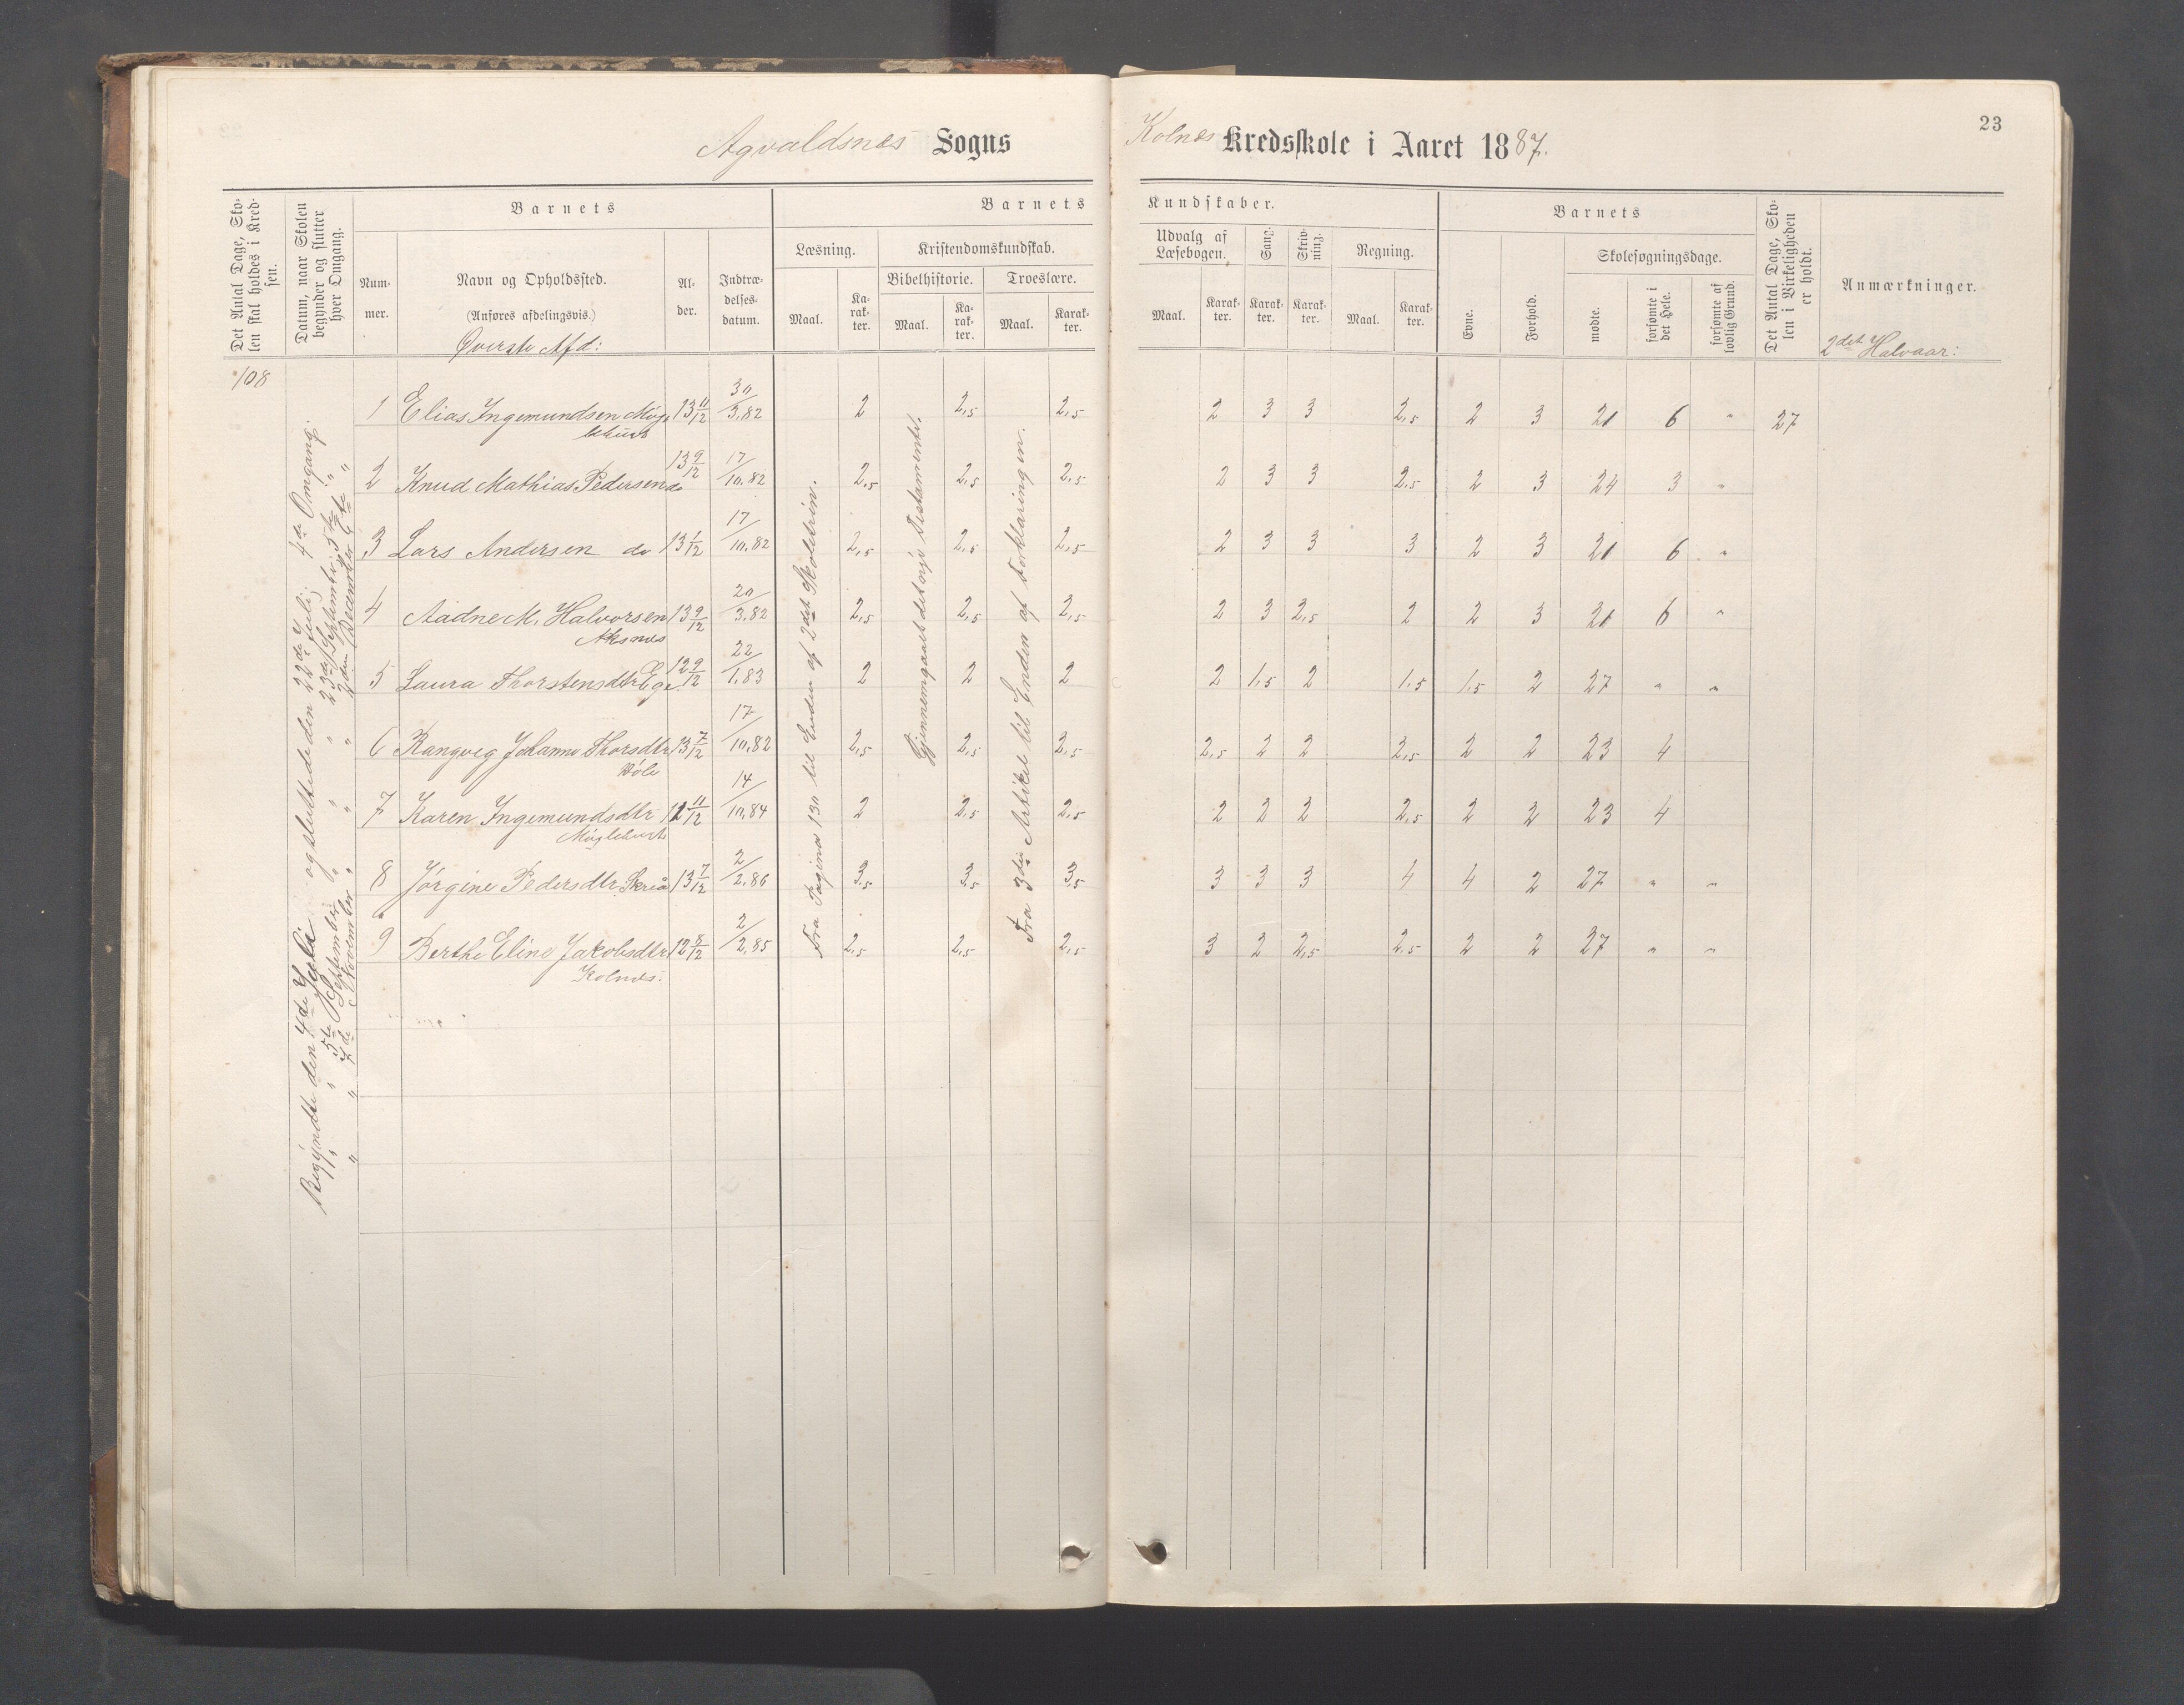 Agvaldsnes Sogns
Kolnes Kredsskole i Aaret 1887.
23
Det Antal Dage, Skolen skal holdes i Kredsen.
Datum, naar Skolen begynder og slutter hver Omgang.
Barnets
Nummer.
Navn og Opholdssted.
(Anføres afdelingsvis.)
Øverste Afd:
Alder.
Indtrædelsesdatum.
Barnets
Læsning.
Maal.
Karakter.
Kristendomskundskab.
Bibelhistorie.
Maal.
Karakter.
Troeslære.
Maal.
Karakter.
Kundskaber.
Udvalg af Læsebogen.
Maal.
Karakter.
Sang.
Karakter.
Skrivning.
Karakter.
Regning.
Maal.
Karakter.
Barnets
Evne.
Forhold.
Skolesøgningsdage.
mødte.
forsømte i det Hele.
forsømte af lovlig Grund.
Det Antal Dage, Skolen i Virkeligheden er holdt.
Anmærkninger.
2det Halvaar:
108
Begyndte den 4de Juli og sluttede den 22de Juli 4de Omgang.
" " 5te September " " 23de September 5te "
" " 7de November " " 2den December 6te "
Fra Pagina 130 til Enden af 2det Skoletrin.
Gjennemgaaet det nye Testamente.
Fra 3die Artikel til Enden af Forklaringen.
1 Elias Ingemundsen Møglebust 13 11/12 30/3.82 2 2,5 2,5 2 3 3 2,5 2 3 21 6 " 27
2 Knud Mathias Pedersen do 13 9/12 17/10.82 2,5 2,5 2,5 2 3 3 2,5 2 3 24 3 "
3 Lars Andersen do 13 1/12 17/10.82 2,5 2,5 2,5 2 3 3 3 2 3 21 6 "
4 Aadne M. Halvorsen Aksnes 13 9/12 20/3.82 2,5 2,5 2,5 2 3 2,5 2 2 3 21 6 "
5 Laura Thorstensdtr Ege. 12 9/12 22/1.83 2 2 2 2 1,5 2 1,5 1,5 2 27 " "
6 Rangveg Johanne Thorsdtr 13 7/12 17/10.82 2,5 2,5 2,5 2,5 2 2 2,5 2 2 23 4
7 Karen Ingemundsdtr Møglebust 11 11/12 14/10.84 2 2,5 2,5 2 2 2 2,5 2 2 23 4
8 Jørgine Pedersdtr Skriå 13 7/12 2/2.86 3,5 3,5 3,5 3 3 3 4 4 2 27 " "
9 Berthe Eline Jakobsdtr Kolnes. 12 8/12 2/2.85 2,5 2,5 2,5 3 2 2,5 2,5 2 2 27 " "